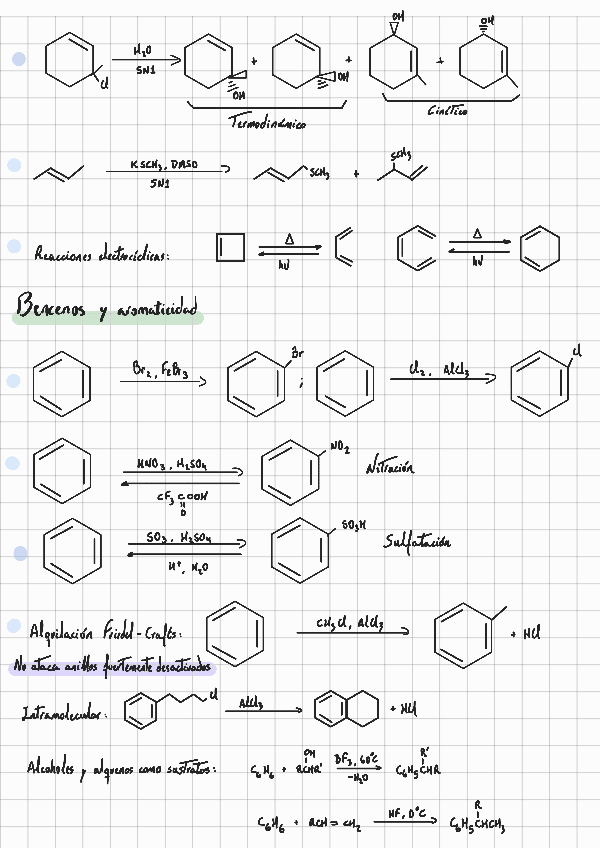 H₂O
SN1
Cl
OH
+
OH
+
OH
+
OH
Termodinámico
Cinético
KSCH₃, DMSO
SN1
SCH₃
+
SCH₃
Reacciones electrocíclicas:
Δ
hν
Δ
hν
Bencenos y aromaticidad
Br₂, FeBr₃
Br
;
Cl₂, AlCl₃
Cl
HNO₃, H₂SO₄
CF₃COOH
NO₂
Nitración
SO₃, H₂SO₄
H⁺, H₂O
SO₃H
Sulfatación
Alquilación Friedel-Crafts:
CH₃Cl, AlCl₃
+ HCl
No ataca anillos fuertemente desactivados
Intramolecular:
Cl
AlCl₃
+ HCl
Alcoholes y alquenos como sustratos:
C₆H₆ + RCHR'
OH
BF₃, 60°C
-H₂O
R'
C₆H₅CHR
C₆H₆ + RCH=CH₂
HF, 0°C
R
C₆H₅CHCH₃